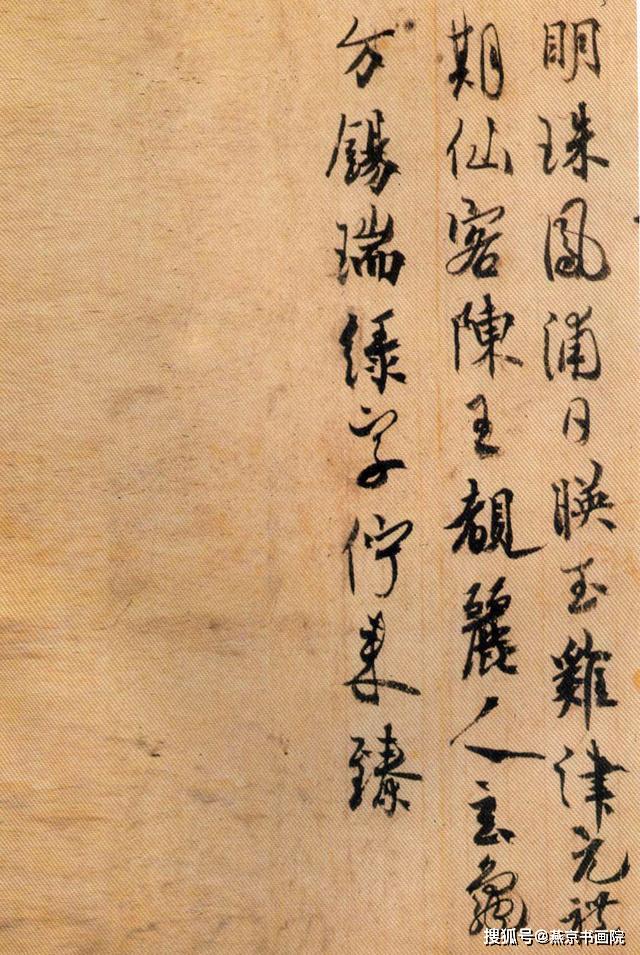 明珠鳳浦日暎玉雞津元禮
期仙客陳王覩麗人玄龜
方錫瑞綠字佇来臻
搜狐号@燕京书画院